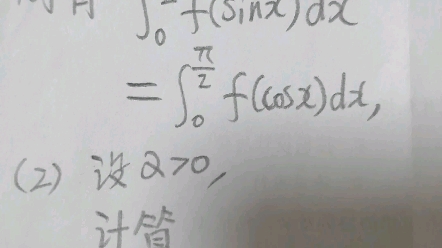 ∫₀ f(sinx)dx
= ∫₀^{π/2} f(cosx)dx,
(2) 设 α>0,
计算